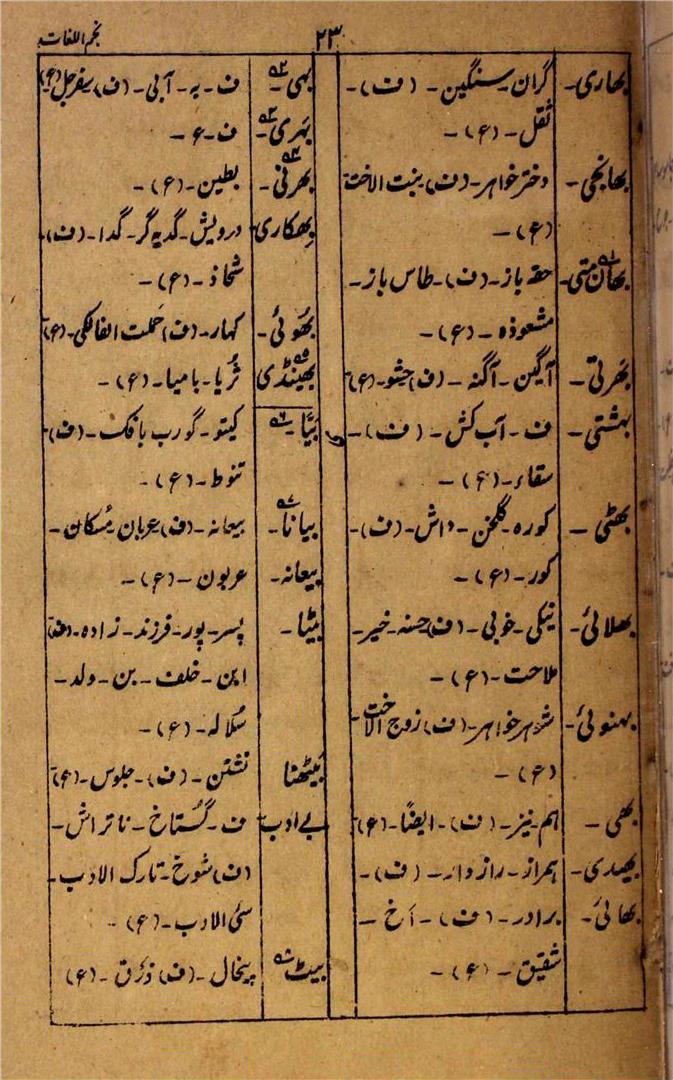 نجم اللغات
۲۳
بھاری- گران- سنگین- (ف)-
ثقل- (ع)-
بھانجی- دختر خواہر- (ف) بنت الاخت
(ع)-
بھان متی- حقہ باز- (ف)- طاس باز-
مشعوذہ- (ع)-
بھرتی- آگین- آگنہ- (ف) حشو- (ع)
بہشتی- ف- آب کش- (ف)-
سقاء- (ع)-
بھٹی- کورہ- گلخن- داش- (ف)-
کور- (ع)-
بھلائی- نیکی- خوبی- (ف) حسنہ- خیر-
ملاحت- (ع)-
بہنوئی- شوہر خواہر- (ف) زوج الاخت-
(ع)-
بھی- ہم- نیز- (ف)- ایضًا- (ع)
بھیدی- ہمراز- رازدار- (ف)-
بھائی- برادر- (ف)- اَخ-
شقیق- (ع)-
بہی- ۵۲ ف- بہ- آبی- (ف) سفرجل- (ع)
بہری- ۵۳ ف- ع-
بھرنی- ۵۴ بطین- (ع)-
بھکاری- درویش- گدیہ گر- گدا- (ف)-
شحاذ- (ع)-
بھوئی- کہار- (ف) حملت (ع)
بھینڈی ۵۵ ثریا- بامیا- (ع)-
بیّا- ۵۶ کیتو- گورب بافک- (ف)-
تنوط- (ع)-
بیانا- ۵۷ بیعانہ- (ف) عربان- مُسکان-
بیعانہ- عربون- (ع)-
بیٹا- پسر- پور- فرزند- زادہ- (ف)
ابن- خلف- بن- ولد-
سُلالہ- (ع)-
بیٹھنا نشتن- (ف)- جلوس- (ع)
بے ادب ف- گستاخ- ناتراش-
(ف) شوخ- تارک الادب-
سئ الادب- (ع)-
بیٹ ۵۸ پیخال- (ف) ذرق- (ع)